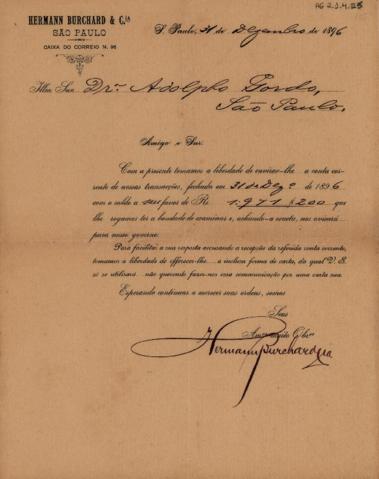 AG 2.3.4.25
HERMANN BURCHARD & C.ia
SÃO PAULO
CAIXA DO CORREIO N. 96
S. Paulo, 31 de Dezembro de 1896
Illm. Snr. Dr. Adolpho Gordo,
São Paulo.
Amigo e Snr.
Com a presente tomamos a liberdade de enviar-lhe a conta cor-
rente de nossas transacções, fechada em 31 de Dez.o de 1896
com o saldo a favor de Rs. 1.971$200 que
lhe rogamos ter a bondade de examinar e, achando-a exacta, nos avisará
para nosso governo.
Para facilitar a sua resposta accusando a recepção da referida conta corrente,
tomamos a liberdade de offerecer-lhe a melhor forma de carta, da qual V. S.
só se utilisará não querendo fazer-nos essa communicação por uma carta sua.
Esperando continuar a merecer suas ordens, somos
Seus
Hermann Burchard & Cia